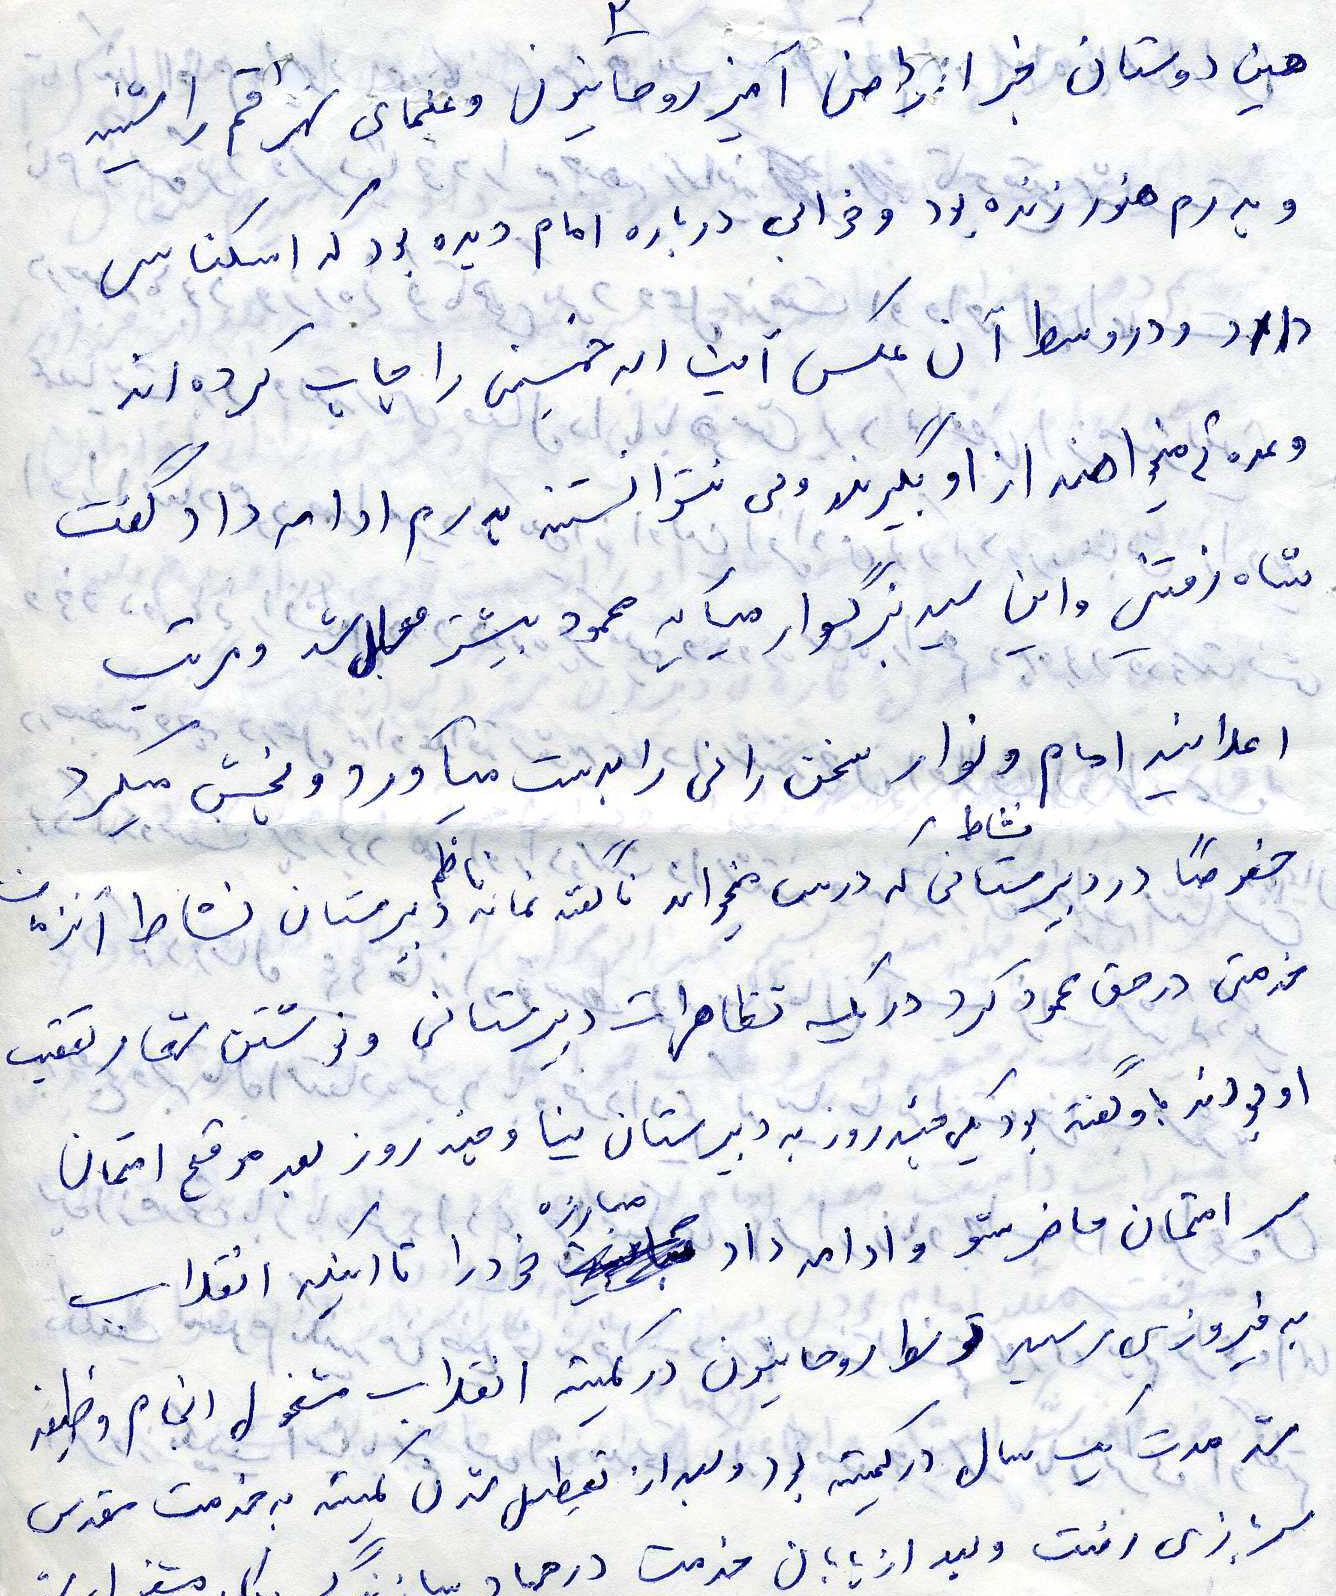 ۲
همین دوستان خبر اعتراض آمیز روحانیون و علمای شهر قم را شنید
و پدرم هنوز زنده بود و خوابی درباره امام دیده بود که اسکناس
دارد و در وسط آن عکس آیت اله خمینی را چاپ کرده اند
و عده ای میخواهند از او بگیرند ولی نتوانستند پدرم ادامه داد گفت
شاه رفتنی و این سید بزرگوار میآید محمود بیشتر شد و مرتب
اعلامیه امام و نوار سخن رانی را بدست میآورد و پخش میکرد
خصوصاً در دبیرستانی نشاط که درس میخواند ناگفته نماند ناظم دبیرستان نشاط آنزمان
خدمتی در حق محمود کرد در یک تظاهرات دبیرستانی و نوشتن شعار تعقیب
او بودند باو گفته بود یکی چند روز به دبیرستان نیا و چند روز بعد موقع امتحان
سر امتحان حاضر شو و ادامه داد مبارزه خود را تا اینکه انقلاب
به فیروزی رسید توسط روحانیون در کمیته انقلاب مشغول انجام وظیفه
شد مدت یک سال در کمیته بود و بعد از تعطیل شدن کمیته به خدمت مقدس
سربازی رفت و بعد از پایان خدمت در جهاد سازندگی